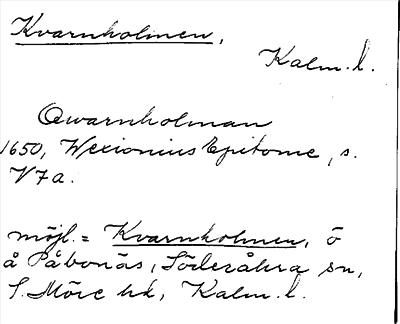 Kvarnholmen,
Kalm. l.
Qwarnholman
1650, Wexionius Epitome, s.
V7a.
möjl. = Kvarnholmen, ö
å Påbonäs, Söderåkra sn,
S. Möre hd, Kalm. l.